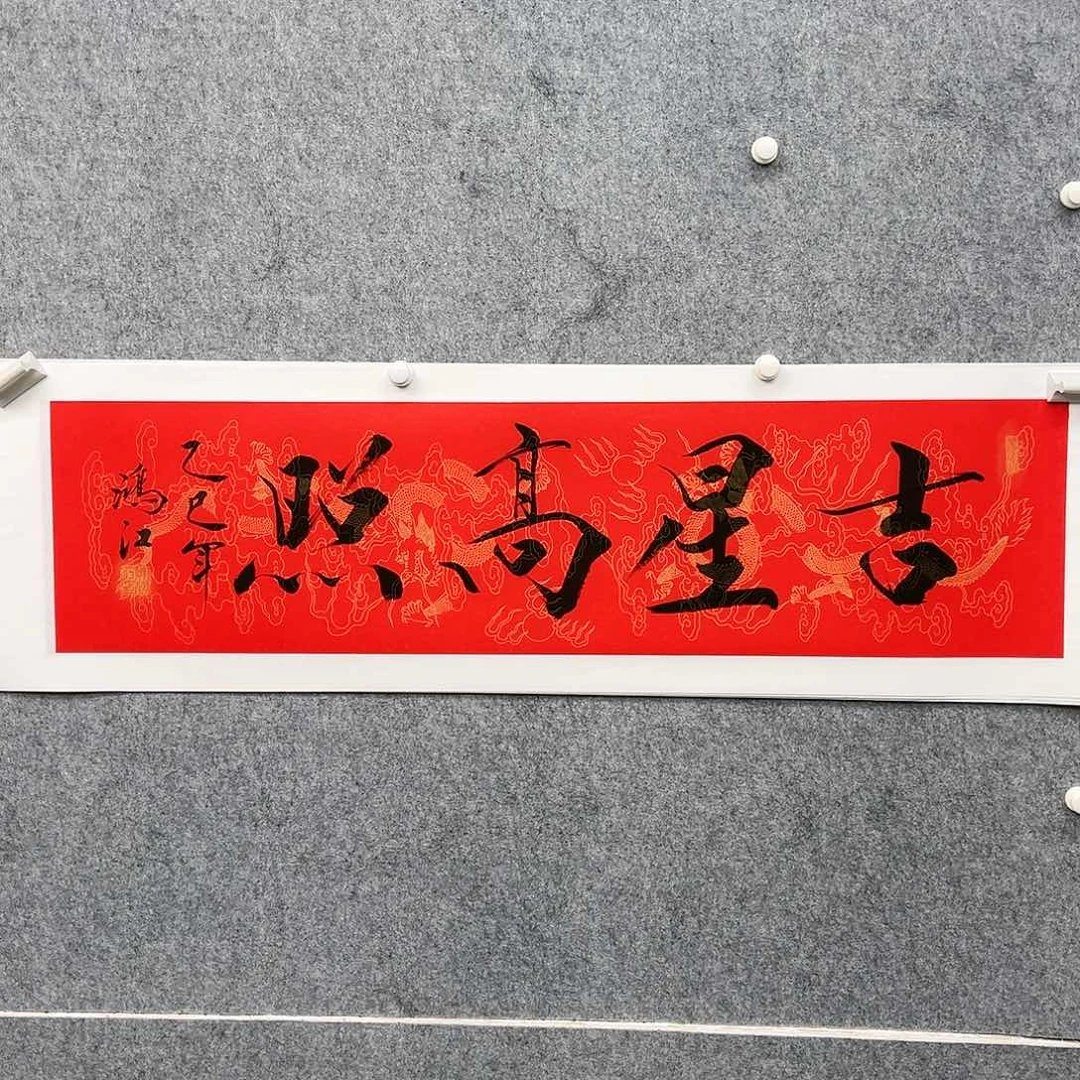 吉星高照
乙巳年
鴻江